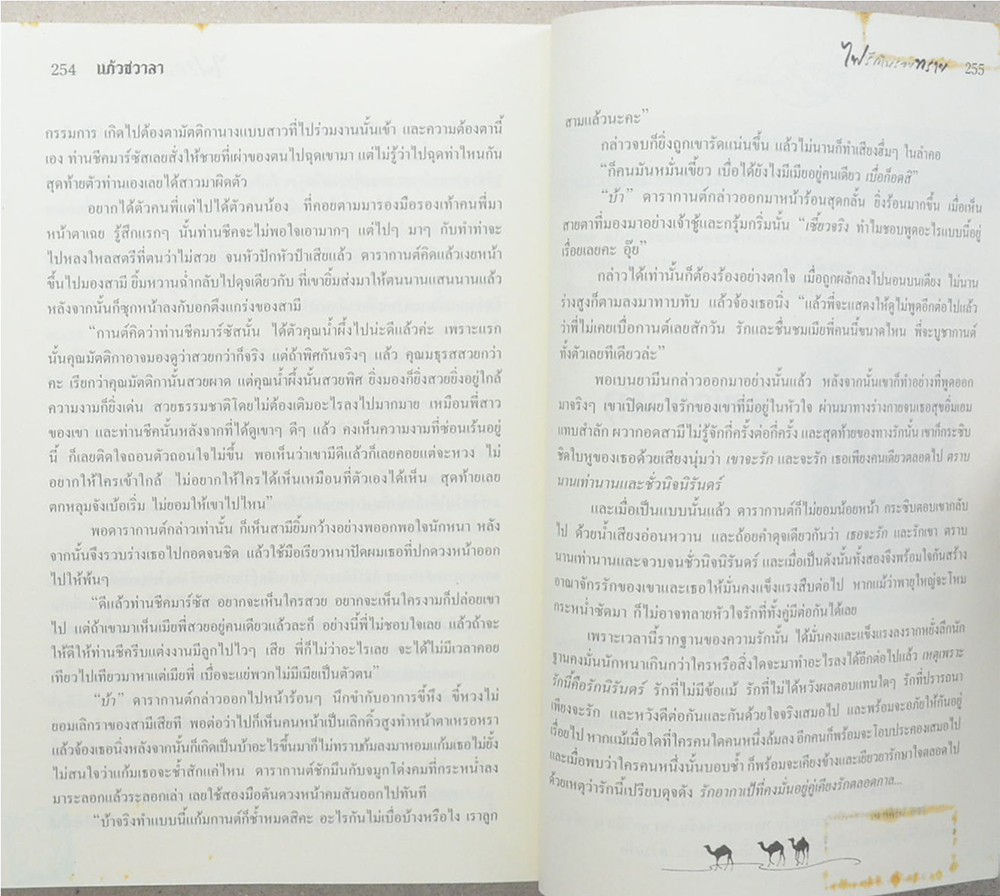 254 แก้วชวาลา
กรรมการ เกิดไปต้องตามัตติกานางแบบสาวที่ไปร่วมงานนั้นเข้า และความต้องตานี้
เอง ท่านชีคมาร์ซัสเลยสั่งให้ชายที่เผ่าของตนไปฉุดเขามา แต่ไม่รู้ว่าไปฉุดท่าไหนกัน
สุดท้ายตัวท่านเองเลยได้สาวมาผิดตัว
อยากได้ตัวคนพี่แต่ไปได้ตัวคนน้อง ที่คอยตามมารองมือรองเท้าคนพี่มา
หน้าตาเฉย รู้สึกแรกๆ นั้นท่านชีคจะไม่พอใจเอามากๆ แต่ไปๆ มาๆ กับทำท่าจะ
ไปหลงใหลสตรีที่ตนว่าไม่สวย จนหัวปักหัวปำเสียแล้ว ดารากานต์คิดแล้วเงยหน้า
ขึ้นไปมองสามี ยิ้มหวานฉ่ำกลับไปดุจเดียวกับ ที่เขายิ้มส่งมาให้ตนนานแสนนานแล้ว
หลังจากนั้นก็ซุกหน้าลงกับอกตึงแกร่งของสามี
“กานต์คิดว่าท่านชีคมาร์ซัสนั้น ได้ตัวคุณน้ำผึ้งไปน่ะดีแล้วค่ะ เพราะแรก
นั้นคุณมัตติกาอาจมองดูว่าสวยกว่าก็จริง แต่ถ้าพิศกันจริงๆ แล้ว คุณมธุรสสวยกว่า
คะ เรียกว่าคุณมัตติกานั้นสวยผาด แต่คุณน้ำผึ้งนั้นสวยพิศ ยิ่งมองก็ยิ่งสวยยิ่งอยู่ใกล้
ความงามก็ยิ่งเด่น สวยธรรมชาติโดยไม่ต้องเติมอะไรลงไปมากมาย เหมือนพี่สาว
ของเขา และท่านชีคนั้นหลังจากที่ได้ดูเขาๆ ดีๆ แล้ว คงเห็นความงามที่ซ่อนเร้นอยู่
นี้ ก็เลยติดใจถอนตัวถอนใจไม่ขึ้น พอเห็นว่าเขามีดีแล้วก็เลยคอยแต่จะหวง ไม่
อยากให้ใครเข้าใกล้ ไม่อยากให้ใครได้เห็นเหมือนที่ตัวเองได้เห็น สุดท้ายเลย
ตกหลุมจังเบ้อเริ่ม ไม่ยอมให้เขาไปไหน”
พอดารากานต์กล่าวเท่านั้น ก็เห็นสามียิ้มกว้างอย่างพออกพอใจนักหนา หลัง
จากนั้นจึงรวบร่างเธอไปกอดจนชิด แล้วใช้มือเรียวหนาปัดผมเธอที่ปกดวงหน้าออก
ไปให้พ้นๆ
“ดีแล้วท่านชีคมาร์ซัส อยากจะเห็นใครสวย อยากจะเห็นใครงามก็ปล่อยเขา
ไป แต่ถ้าเขามาเห็นเมียพี่สวยอยู่คนเดียวแล้วละก็ อย่างนี้พี่ไม่ชอบใจเลย แล้วถ้าจะ
ให้ดีให้ท่านชีครีบแต่งงานมีลูกไปไวๆ เสีย พี่ก็ไม่ว่าอะไรเลย จะได้ไม่มีเวลาคอย
เทียวไปเทียวมาหาแต่เมียพี่ เบื่อจะแย่พวกไม่มีเมียเป็นตัวตน”
“บ้า” ดารากานต์กล่าวออกไปหน้าร้อนๆ นึกขำกับอาการขี้หึง ขี้หวงไม่
ยอมเลิกราของสามีเสียที พอต่อว่าไปก็เห็นคนหน้าเป็นเลิกคิ้วสูงทำหน้าตาเหรอหรา
แล้วจ้องเธอนิ่งหลังจากนั้นก็เกิดเป็นบ้าอะไรขึ้นมาก็ไม่ทราบก้มลงมาหอมแก้มเธอไม่ยั้ง
ไม่สนใจว่าแก้มเธอจะช้ำสักแค่ไหน ดารากานต์ชักมึนกับจมูกโด่งคมที่กระหน่ำลง
มาระลอกแล้วระลอกเล่า เลยใช้สองมือดันดวงหน้าคมสันออกไปทันที
“บ้าจริงทำแบบนี้แก้มกานต์ก็ช้ำหมดสิคะ อะไรกันไม่เบื่อบ้างหรือไง เราลูก
ไฟรักในรอยทราย 255
สามแล้วนะคะ”
กล่าวจบก็ยิ่งถูกเขารัดแน่นขึ้น แล้วไม่นานก็ทำเสียงฮึ่มๆ ในลำคอ
“ก็คนมันหมั่นเขี้ยว เบื่อได้ยังไงมีเมียอยู่คนเดียว เบื่อก็อดสิ”
“บ้า” ดารากานต์กล่าวออกมาหน้าร้อนสุดกลั้น ยิ่งร้อนมากขึ้น เมื่อเห็น
สายตาที่มองมาอย่างเจ้าชู้และกรุ้มกริ่มนั้น “เซี้ยวจริง ทำไมชอบพูดอะไรแบบนี้อยู่
เรื่อยเลยคะ อุ๊ย”
กล่าวได้เท่านั้นก็ต้องร้องอย่างตกใจ เมื่อถูกผลักลงไปนอนบนเตียง ไม่นาน
ร่างสูงก็ตามลงมาทาบทับ แล้วจ้องเธอนิ่ง “แล้วพี่จะแสดงให้ดูไม่พูดอีกต่อไปแล้ว
ว่าพี่ไม่เคยเบื่อกานต์เลยสักวัน รักและชื่นชมเมียพี่คนนี้ขนาดไหน พี่จะบูชากานต์
ทั้งตัวเลยทีเดียวล่ะ”
พอเบนยามีนกล่าวออกมาอย่างนั้นแล้ว หลังจากนั้นเขาก็ทำอย่างที่พูดออก
มาจริงๆ เขาเปิดเผยใจรักของเขาที่มีอยู่ในหัวใจ ผ่านมาทางร่างกายจนเธอสุขอิ่มเอม
แทบสำลัก ผวากอดสามีไม่รู้จักกี่ครั้งต่อกี่ครั้ง และสุดท้ายของทางรักนั้น เขาก็กระซิบ
ชิดใบหูของเธอด้วยเสียงนุ่มว่า เขาจะรัก และจะรัก เธอเพียงคนเดียวตลอดไป ตราบ
นานเท่านานและชั่วนิจนิรันดร์
และเมื่อเป็นแบบนั้นแล้ว ดารากานต์ก็ไม่ยอมน้อยหน้า กระซิบตอบเขากลับ
ไป ด้วยน้ำเสียงอ่อนหวาน และถ้อยคำดุจเดียวกันว่า เธอจะรัก และรักเขา ตราบ
นานเท่านานและจวบจนชั่วนิจนิรันดร์ และเมื่อเป็นดังนั้นทั้งสองจึงพร้อมใจกันสร้าง
อาณาจักรรักของเขาและเธอให้มั่นคงแข็งแรงสืบต่อไป หากแม้ว่าพายุใหญ่จะโหม
กระหน่ำซัดมา ก็ไม่อาจทลายหัวใจรักที่ทั้งคู่มีต่อกันได้เลย
เพราะเวลานี้รากฐานของความรักนั้น ได้มั่นคงและแข็งแรงลงรากหยั่งลึกนัก
ฐานคงมั่นนักหนาเกินกว่าใครหรือสิ่งใดจะมาทำอะไรลงได้อีกต่อไปแล้ว เหตุเพราะ
รักนี้คือรักนิรันดร์ รักที่ไม่มีข้อแม้ รักที่ไม่ได้หวังผลตอบแทนใดๆ รักที่ปรารถนา
เพียงจะรัก และหวังดีต่อกันและกันด้วยใจจริงเสมอไป และพร้อมจะอภัยให้กันอยู่
เรื่อยไป หากแม้เมื่อใดที่ใครคนใดคนหนึ่งล้มลง อีกคนก็พร้อมจะโอบประคองเสมอไป
และเมื่อพบว่าใครคนหนึ่งนั้นบอบช้ำ ก็พร้อมจะเคียงข้างและเยียวยารักษาใจตลอดไป
ด้วยเหตุว่ารักนี้เปรียบดุจดัง รักอากาเป้ที่คงมั่นอยู่คู่เคียงรักตลอดกาล...